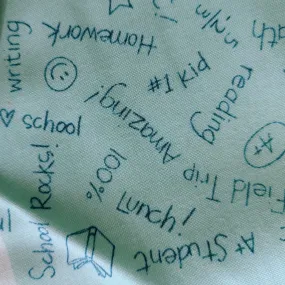 writing
Homework
#1 Kid
reading
Amazing!
♡ school
A+
100%
Field Trip
Lunch!
School Rocks!
A+ Student